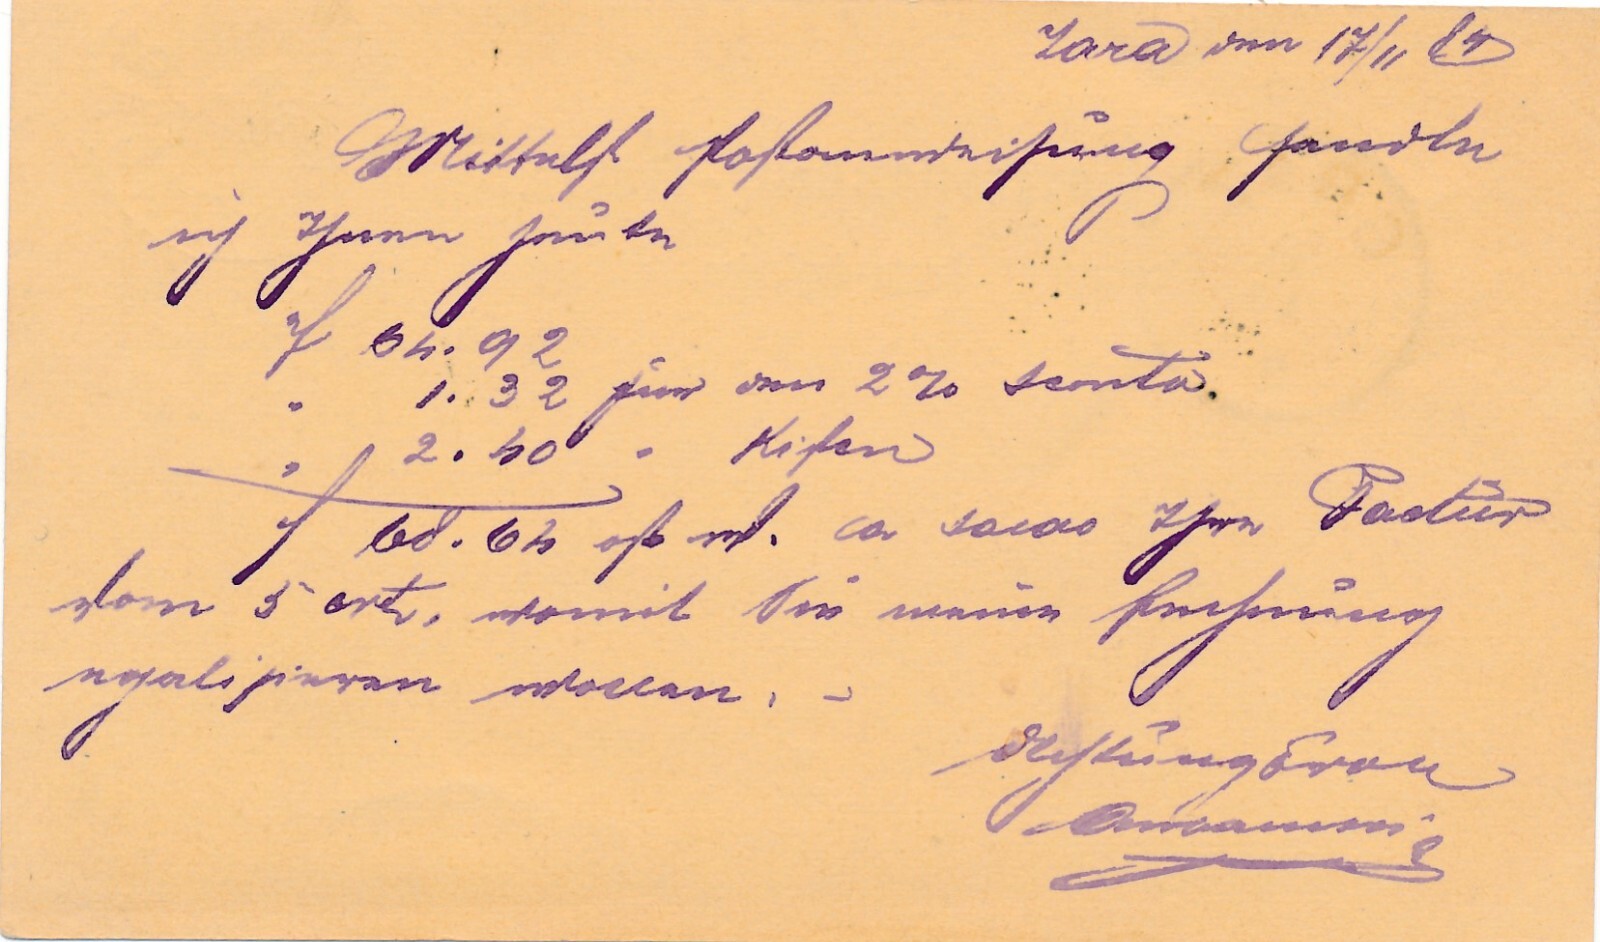 Zara den 17/11 84
Mittelst Postanweisung sandte
ich Ihnen heute
f 64.92
" 1.32 für den 2% sconto.
" 2.40 " Kisten
f 68.64 öst. W. a saldo Ihre Factur
vom 5 crt., womit Sie meine Rechnung
egalisieren wollen. –
Achtungsvoll